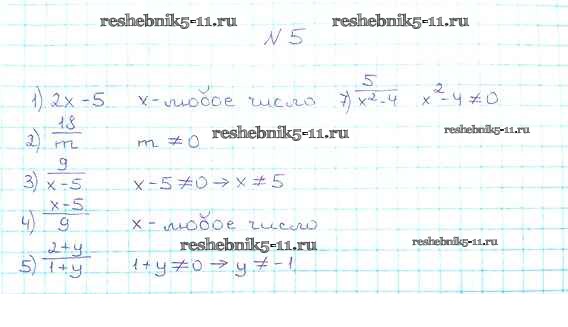 reshebnik5-11.ru reshebnik5-11.ru
N 5
1) 2x-5 x-любое число 7) 5/(x²-4) x²-4≠0
2) 18/m m ≠ 0 reshebnik5-11.ru reshebnik5-11.ru
3) 9/(x-5) x-5≠0→x≠5
4) (x-5)/9 x-любое число
reshebnik5-11.ru reshebnik5-11.ru
5) (2+y)/(1+y) 1+y≠0→y≠-1